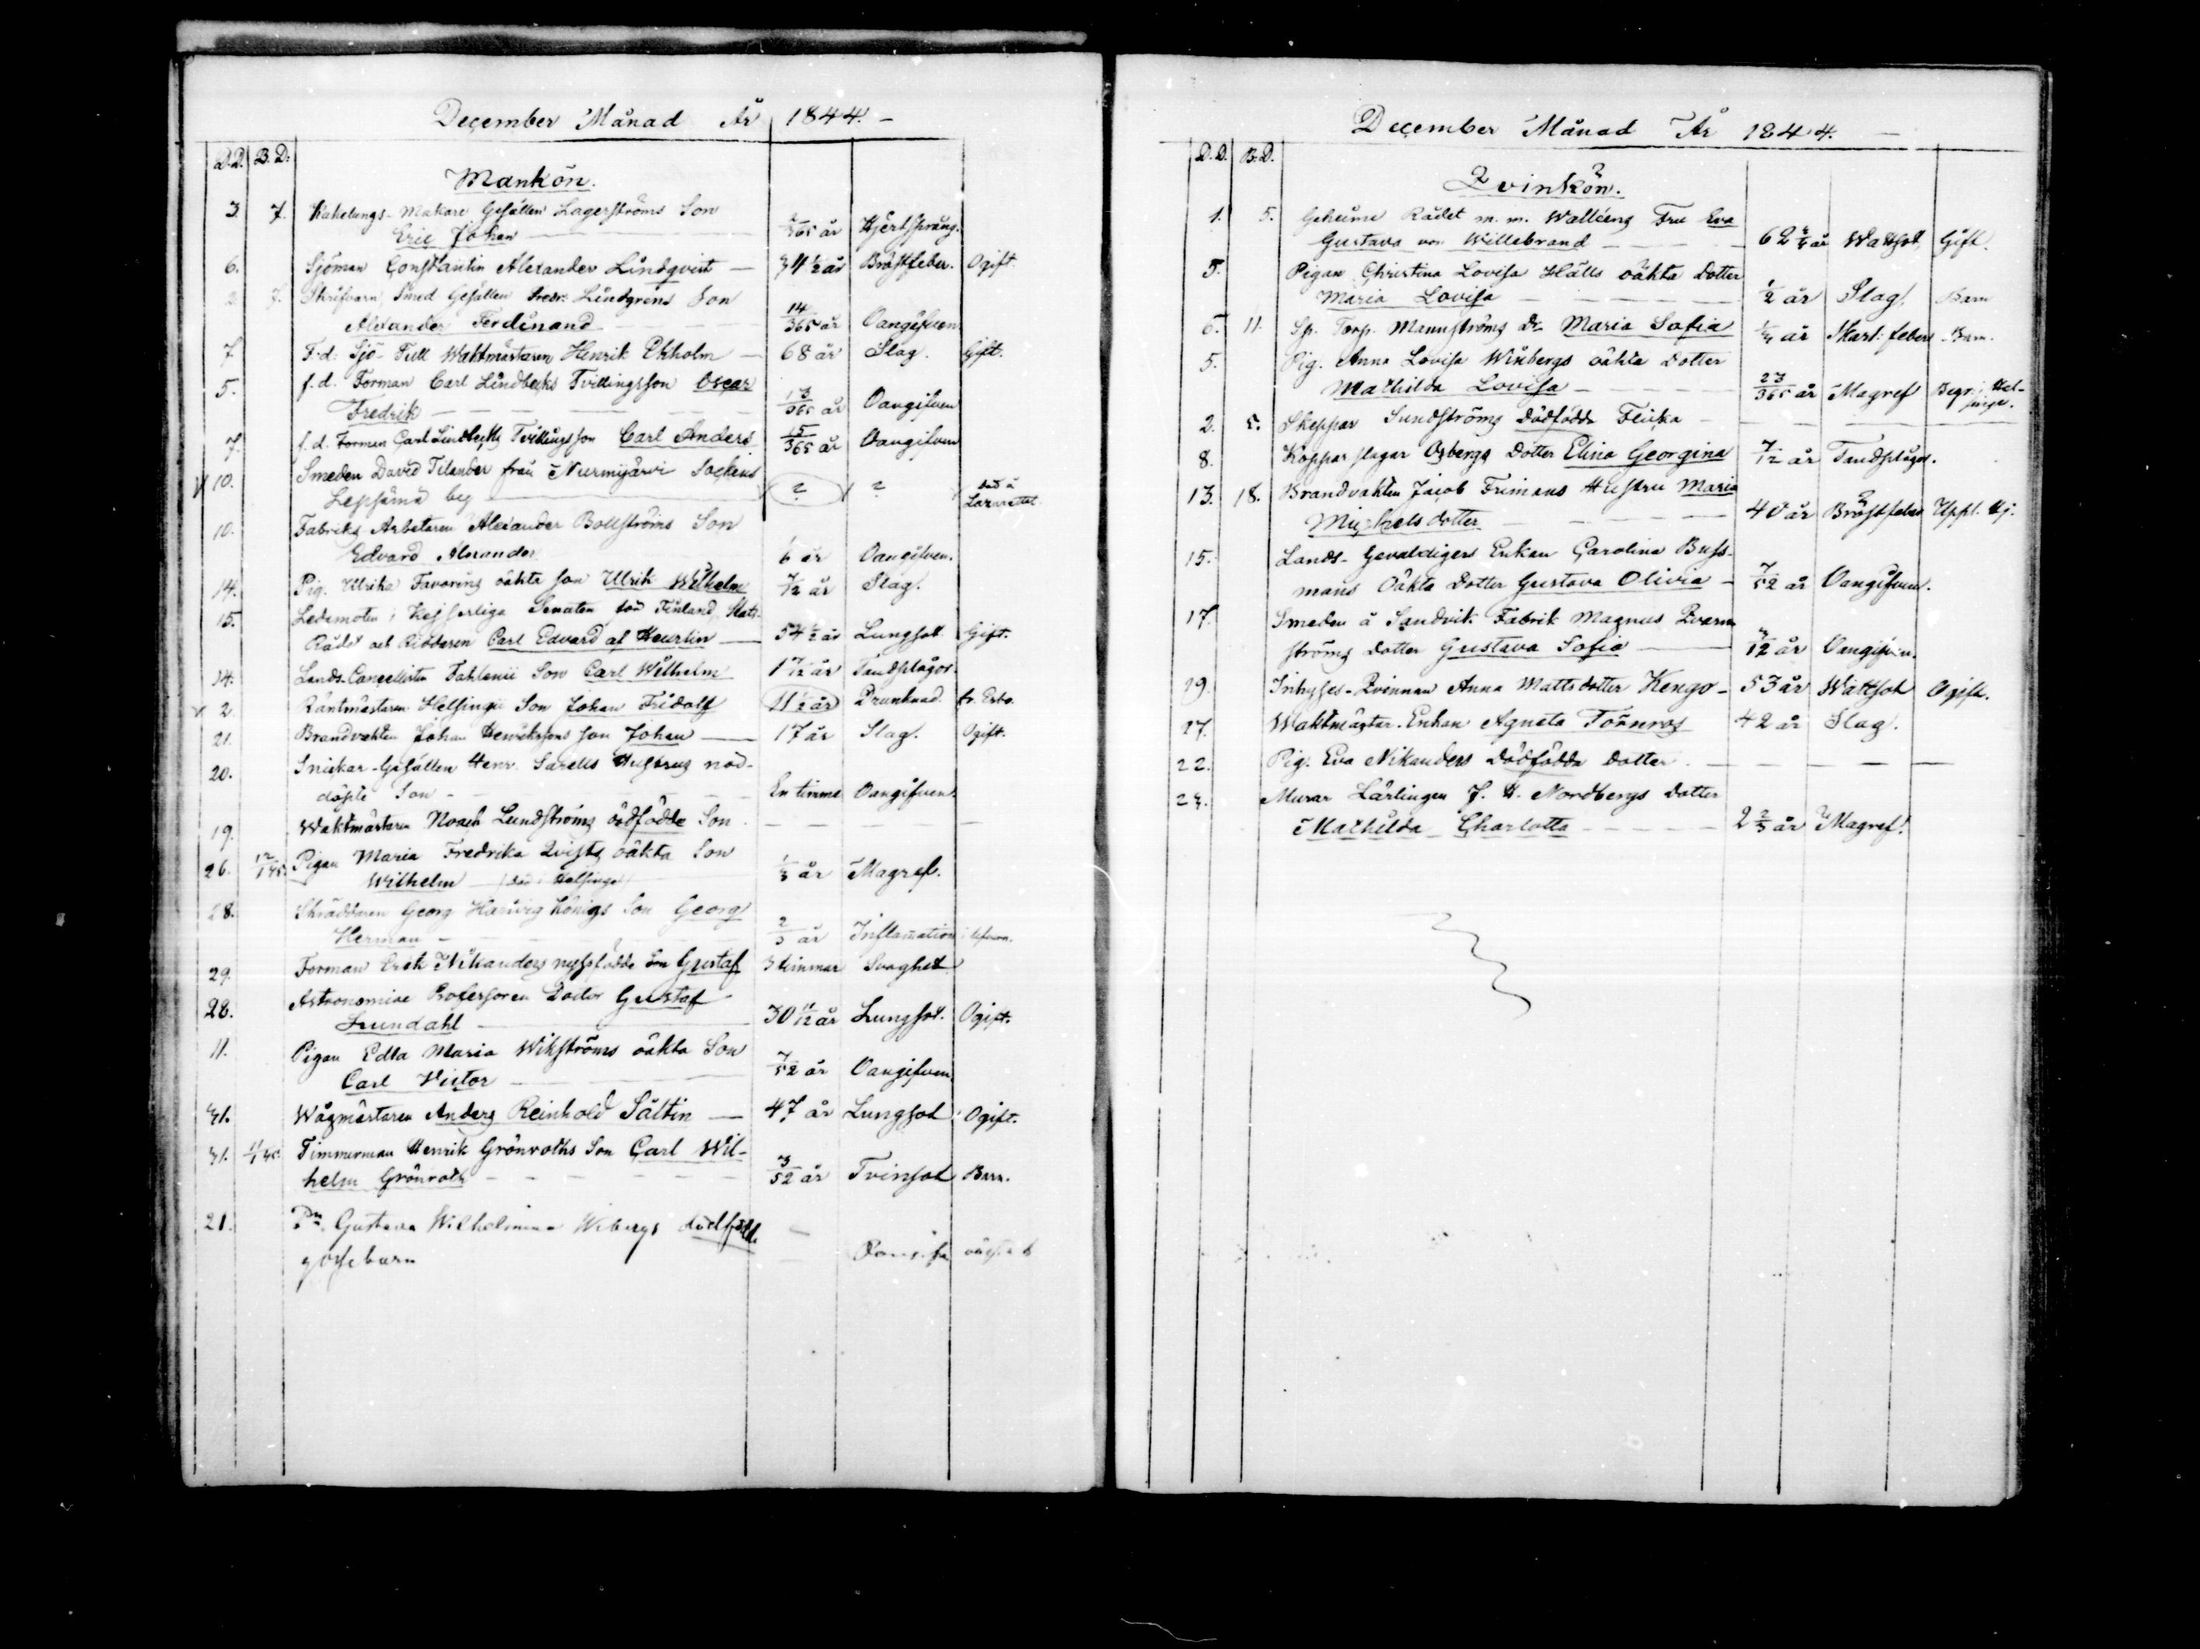 December Månad År 1844. –
D.D. B.D.
Mankön.
3. 7. Kakelungs-Makare Gesällen Lagerströms Son
Eric Johan /365 år Hjertsprång.
6. Sjöman Constantin Alexander Lindqvist — 34 1/2 år Bröstfeber. Ogift.
2. 7. Smed Gesällen Fredr: Lindgrens Son
Alexander Ferdinand 14/365 år Oangifven
7 F:d: Sjö-Tull Waktmästaren Henrik Ekholm — 68 år Slag. Gift.
5. f.d. Forman Carl Lindbecks Tvillingsson Oscar
Fredrik 13/365 år Oangifven
7. f.d. Forman Carl Lindbecks Tvillingsson Carl Anders 15/365 år Oangifven
10. Smeden David Tilander från Nurmijärvi Sockens
Lepsämä by ? ? död å Lazarettet
10. Fabriks Arbetaren Alexander Bollströms Son
Edvard Alexander 1/6 år Oangifven.
14. Pig. Ulrika Favorins oäkta son Ulrik Wilhelm 7/12 år Slag.
15. Ledamoten i Kejserliga Senaten för Finland, Stats-
Rådet och Riddaren Carl Edvard af Heurlin — 54 1/2 år Lungsot Gift.
14. Lands-Cancellisten Fahlenii Son Carl Wilhelm 1 7/12 år Tandplågor.
2. Räntmästaren Helsingii Son Johan Fridolf 11 1/2 år Drunknad fr. Esbo.
21. Brandvakten Johan Henrikssons son Johan — 17 år Slag. Ogift.
20. Snickar-Gesällen Henr. Sarells Hustrus nöd-
döpte Son — En timme Oangifven.
19. Waktmästaren Noach Lundströms dödfödde Son — — —
26. 12/1 45. Pigan Maria Fredrika Qvists oäkta Son
Wilhelm (död i Helsinge) 1/3 år Magref.
28. Skräddaren Georg Hartvig Königs Son Georg
Herman 2/3 år Inflamation
29. Forman Erik Nikanders nyssfödde Son Gustaf 3 timmar Svaghet
28. Astronomiae Professoren Doctor Gustaf
Lundahl 30 11/12 år Lungsot. Ogift.
11. Pigan Edla Maria Wikströms oäkta Son
Carl Victor 7/52 år Oangifven.
31. Wågmästaren Anders Reinhold Sältin — 47 år Lungsot Ogift.
31. Timmerman Henrik Grönroths Son Carl Wil-
helm Grönroth 3/52 år Tvinsot Barn.
21. Pn. Gustava Wilhelmina Wibergs dödfödde
gossebarn —
December Månad År 1844. —
D.D. B.D.
Qvinkön.
1. 5. Geheime Rådet m. m. Walleens Fru Eva
Gustava von Willebrand 62 år Wattsot Gift.
5. Pigan Christina Lovisa Hälls oäkta dotter
Maria Lovisa 1/2 år Slag. Barn
6. 11. Sp. Torp. Mannströms Dr Maria Sofia 1/4 år Skarl: feber Barn.
5. Pig. Anna Lovisa Winbergs oäkta dotter
Mathilda Lovisa 23/365 år Magref Begr. i Hel-
singe.
2. 5. Skeppar Sundströms dödfödda Flicka — — —
8. Kopparslagar Osbergs dotter Elina Georgina 7/12 år Tandplågor.
13. 18. Brandvakten Jacob Frimans Hustru Maria
Michelsdotter 40 år Bröstfeber
15. Lands-Gevaldigers Enkan Carolina Buss-
mans Oäkta dotter Gustava Olivia — 7/52 år Oangifven.
17. Smeden å Sandvik Fabrik Magnus Qvarn
ströms dotter Gustava Sofia — /12 år Oangifven.
29. Inhyses-Qvinnan Anna Mattsdotter Kengo — 53 år Wattsot Ogift.
27. Waktmästar-Enkan Agneta Tönnros 42 år Slag.
22. Pig. Eva Nikanders dödfödda dotter — — —
23. Murar Lärlingen J. H. Nordbergs dotter
Mathilda Charlotta 2 2/3 år Magref.